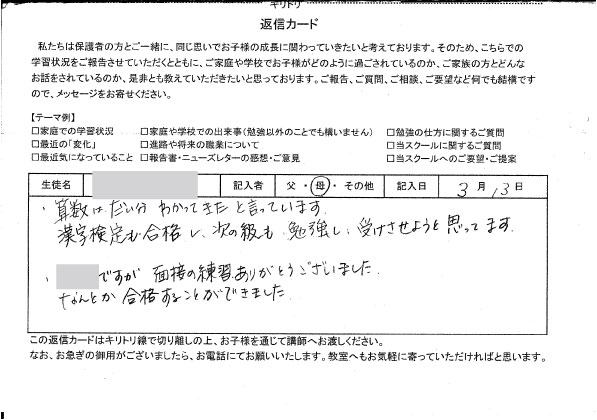 キリトリ
返信カード
私たちは保護者の方とご一緒に、同じ思いでお子様の成長に関わっていきたいと考えております。そのため、こちらでの
学習状況をご報告させていただくとともに、ご家庭や学校でお子様がどのように過ごされているのか、ご家族の方とどんな
お話をされているのか、是非とも教えていただきたいと思っております。ご報告、ご質問、ご相談、ご要望など何でも結構です
ので、メッセージをお寄せください。
【テーマ例】
□家庭での学習状況 □家庭や学校での出来事(勉強以外のことでも構いません) □勉強の仕方に関するご質問
□最近の「変化」 □進路や将来の職業について □当スクールに関するご質問
□最近気になっていること □報告書・ニューズレターの感想・ご意見 □当スクールへのご要望・ご提案
生徒名 記入者 父・母・その他 記入日 3月13日
・算数は、だい分 わかってきた と言っています。
漢字検定も合格し、次の級も 勉強し、受けさせようと思ってます。
・ ですが 面接の練習ありがとうございました。
なんとか 合格することができました
この返信カードはキリトリ線で切り離しの上、お子様を通じて講師へお渡しください。
なお、お急ぎの御用がございましたら、お電話にてお願いいたします。教室へもお気軽に寄っていただければと思います。